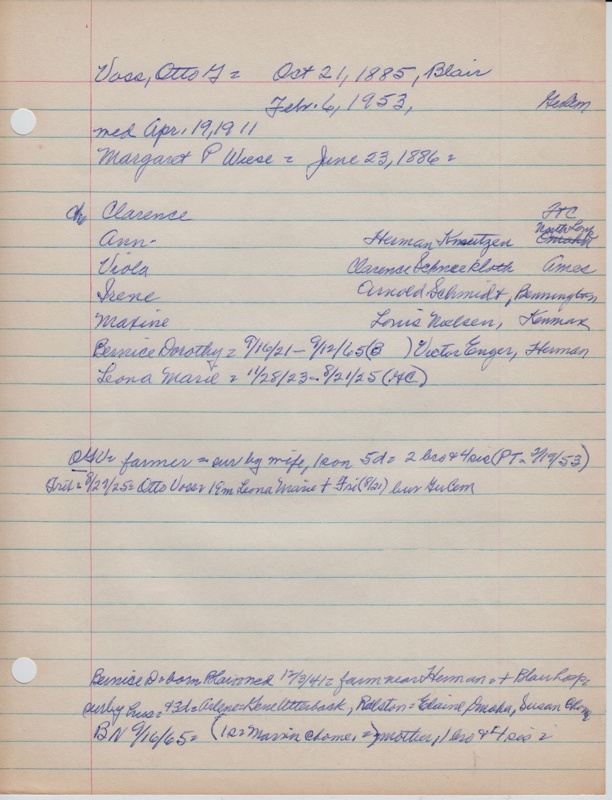 Voss, Otto G = Oct 21, 1885, Blair
Febr. 6, 1953, GerCem
med Apr. 19, 1911
Margaret P Wiese = June 23, 1886 =
Ch, Clarence FtC
Ann - Herman Kneutzen North Loup Omaha
Viola Clarence Schneekloth Ames
Irene Arnold Schmidt, Bennington
Maxine Louis Nielsen, Kennard
Bernice Dorothy = 9/16/21 - 9/12/65 (B ) Victor Enger, Herman
Leona Marie = 11/28/23 - 8/21/25 (GC)
OGV = farmer = sur by wife, 1 son 5d = 2 bro & 4 sis (PT = 2/19/53)
8/27/25 = Otto Voss = 19m Leona Marie + Fri (8/21) bur GerCem
Bernice D = born Blair = med 12/3/41 = farm near Herman = + Blair Hosp,
sur by hus = 3d = Arlene = Gene Utterback, Ralston = Elaine, Omaha, Susan @home
BN 9/16/65 = (1s = Marvin @home, =) mother, 1 bro & 4 sis =